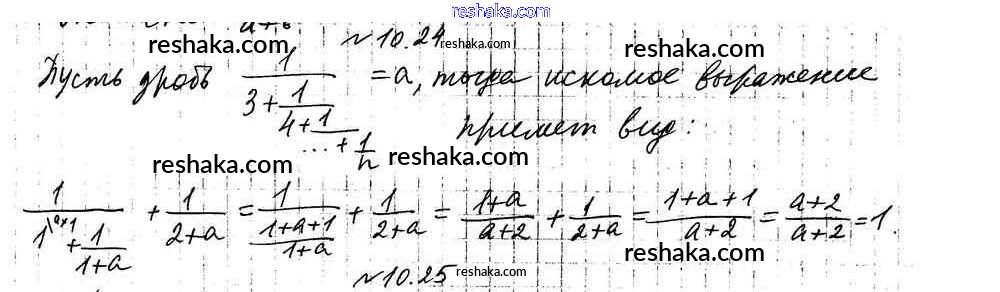 reshaka.com
№10.24
reshaka.com
reshaka.com
reshaka.com
Пусть дробь 1/(3+1/(4+1/(...+1/n))) = a, тогда искомое выражение
примет вид:
reshaka.com
reshaka.com
reshaka.com
1/(1^{\a+1}+1/(1+a)) + 1/(2+a) = 1/((1+a+1)/(1+a)) + 1/(2+a) = (1+a)/(a+2) + 1/(2+a) = (1+a+1)/(a+2) = (a+2)/(a+2) = 1.
reshaka.com
№10.25 reshaka.com